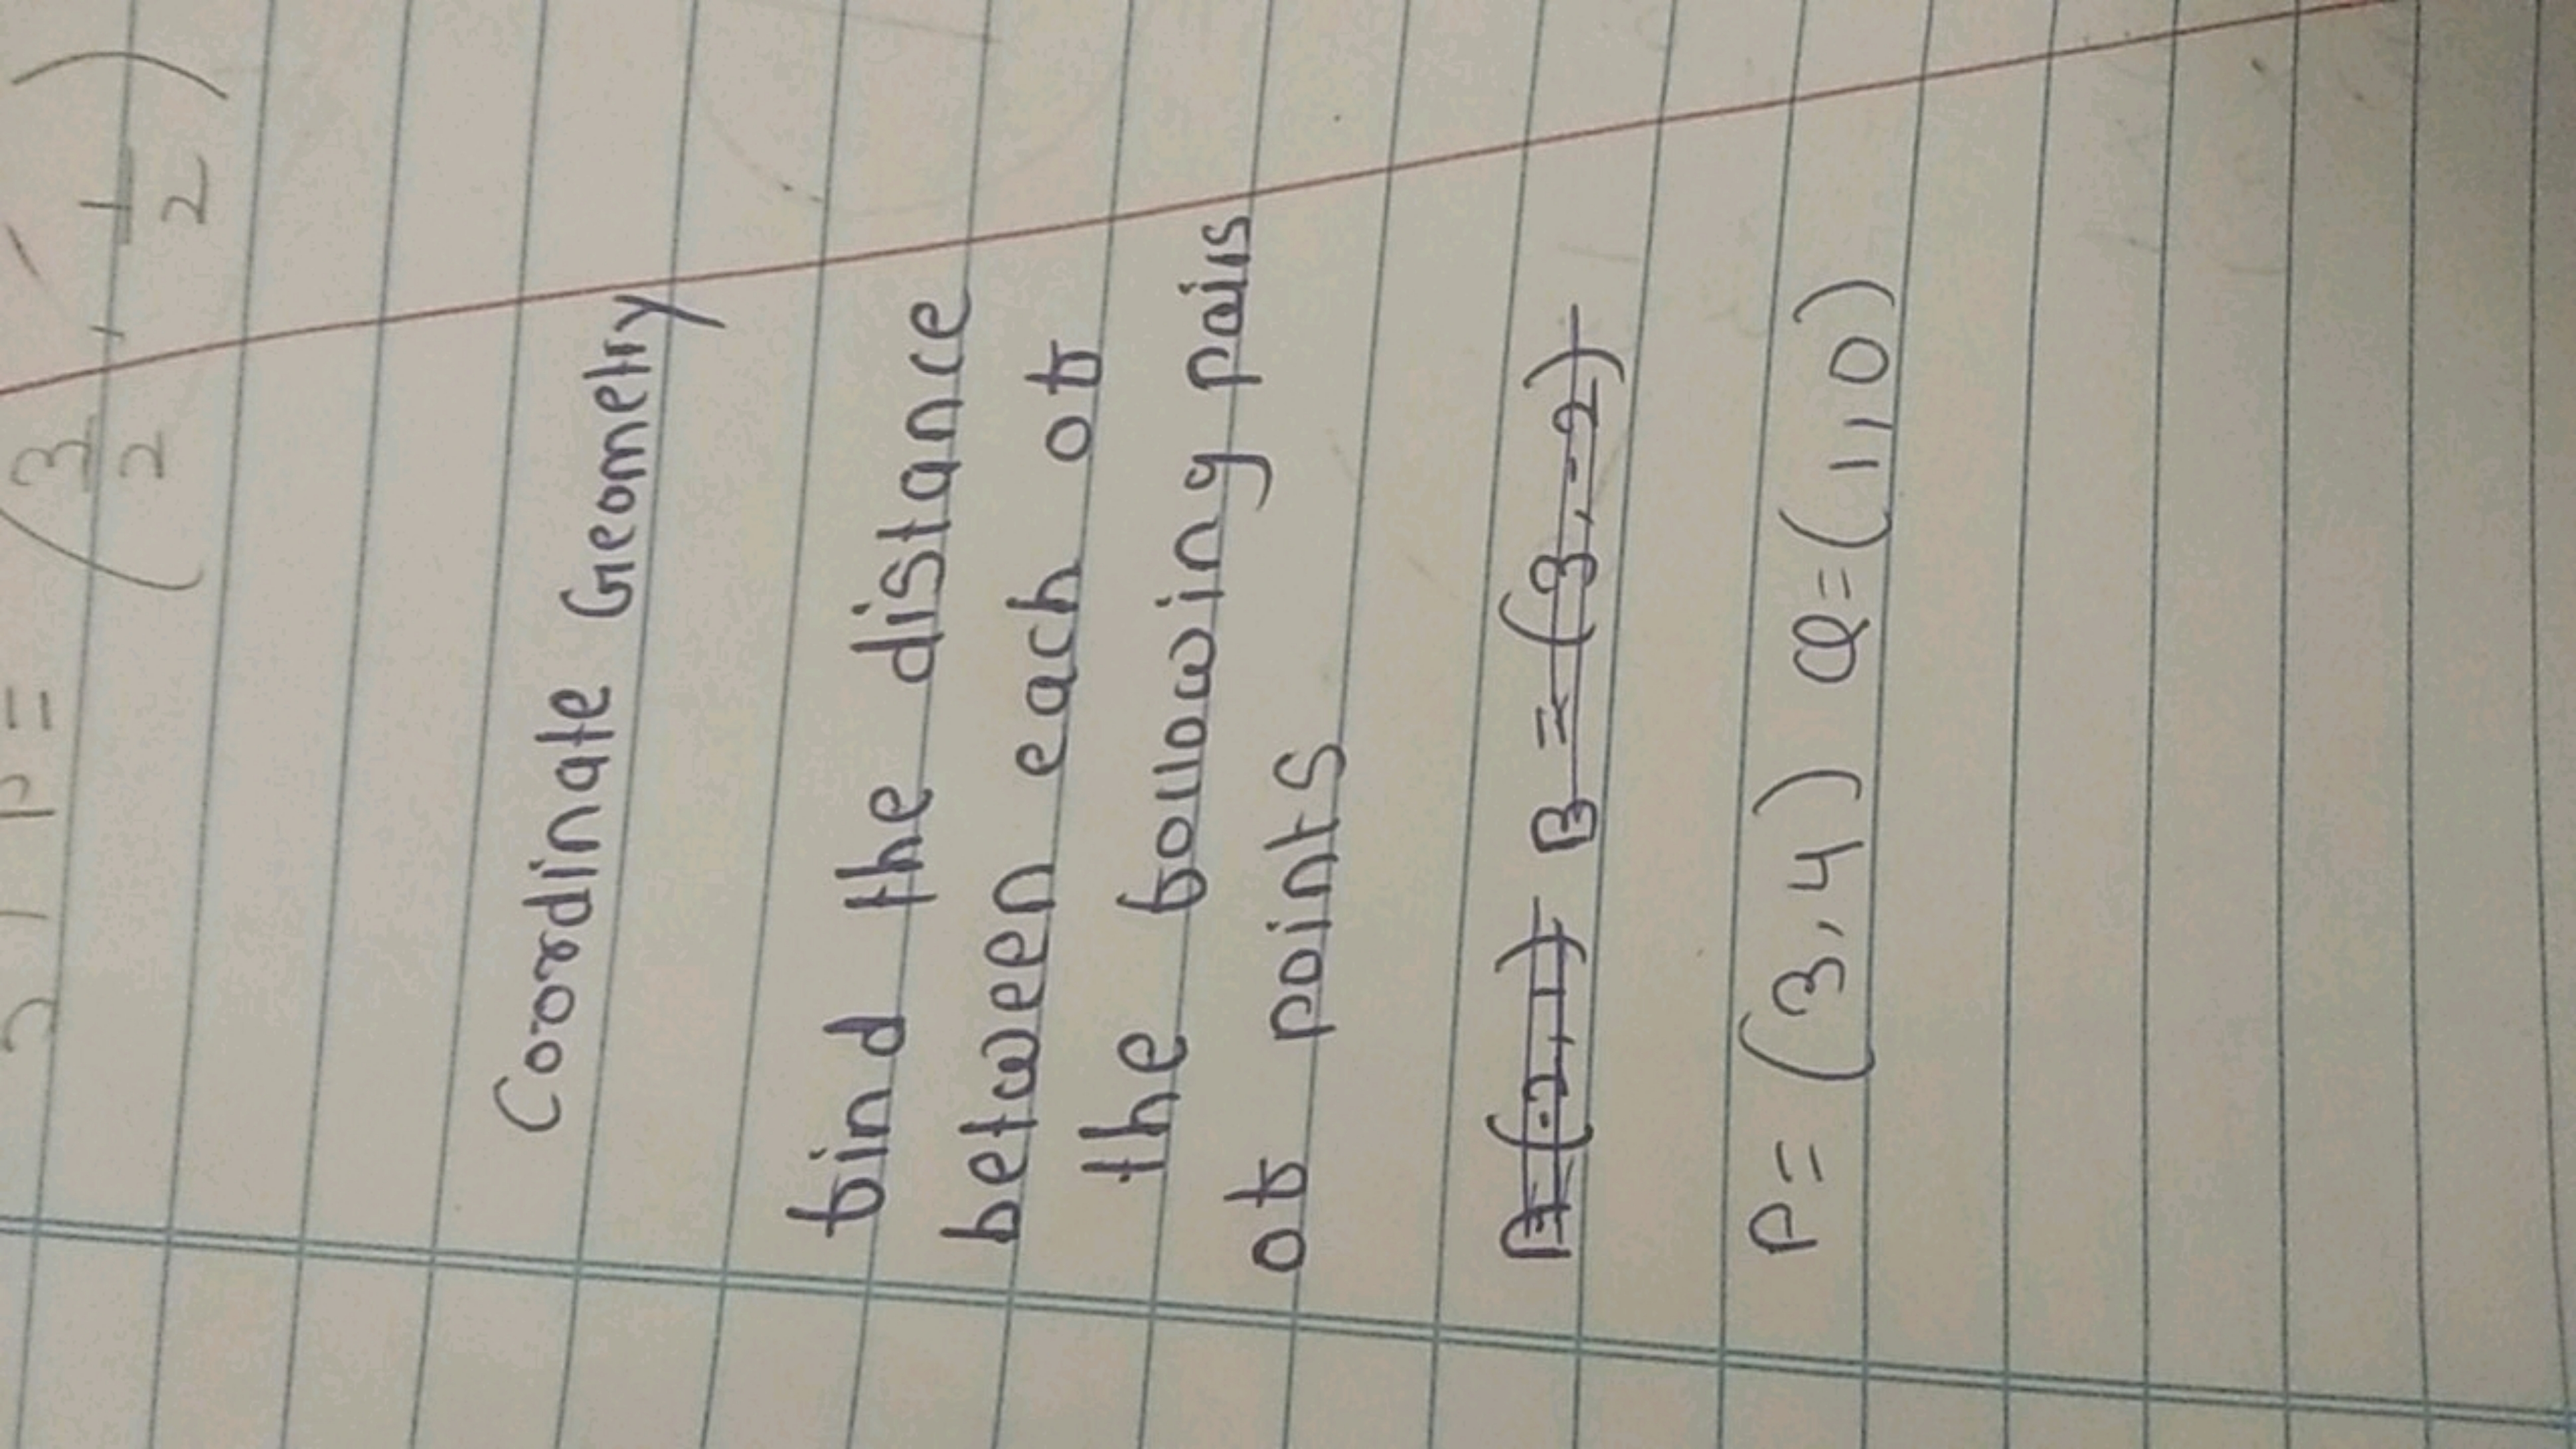 P = ( 3/2 , 1/2 )
Coordinate Geometry
find the distance
between each of
the following pairs
of points
A = (-2,1) B = (3,-2)
P = (3,4) Q = (1,0)